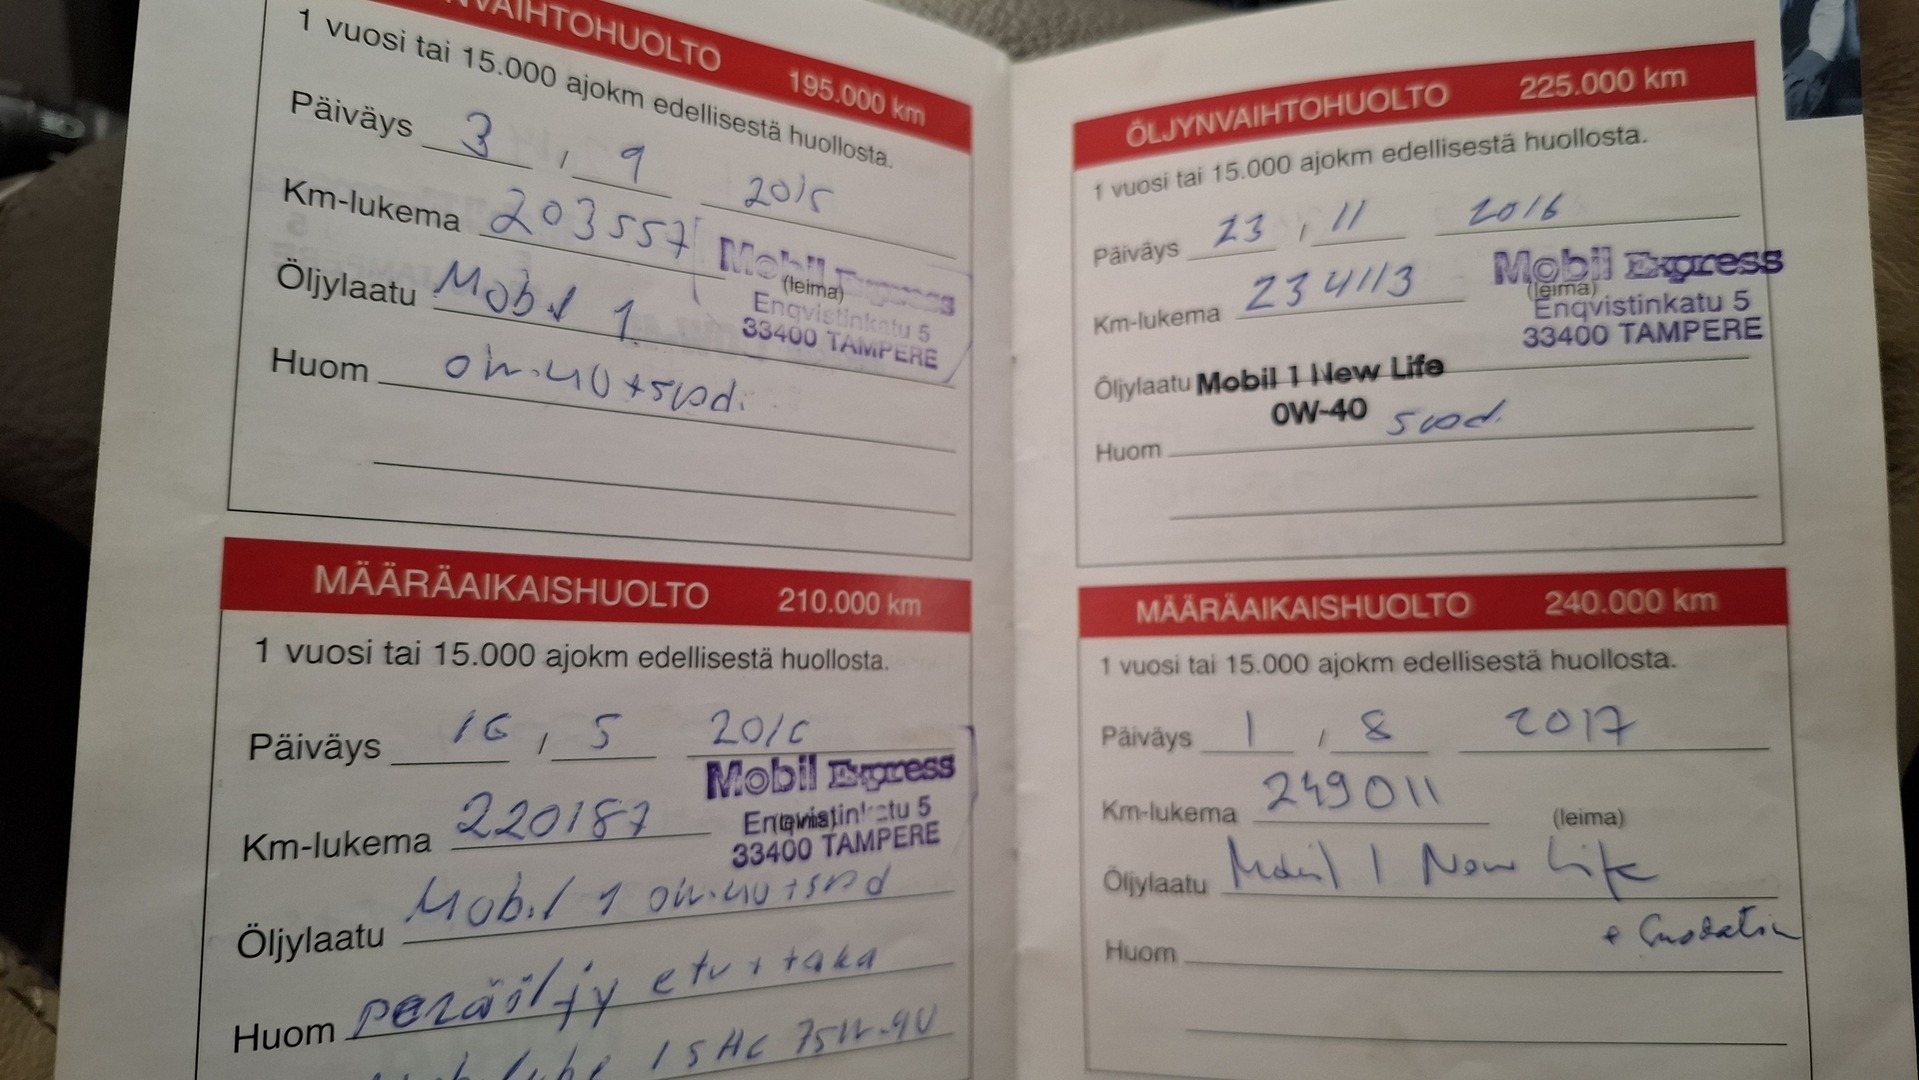 NVAIHTOHUOLTO 195.000 km
1 vuosi tai 15.000 ajokm edellisestä huollosta.
Päiväys 3 / 9 2015
Km-lukema 203557
Mobil Express
(leima)
Enqvistinkatu 5
33400 TAMPERE
Öljylaatu Mobil 1
Huom 0W-40 + suod.
MÄÄRÄAIKAISHUOLTO 210.000 km
1 vuosi tai 15.000 ajokm edellisestä huollosta.
Päiväys 16 / 5 2016
Mobil Express
Km-lukema 220187
(leima)
Enqvistinkatu 5
33400 TAMPERE
Öljylaatu Mobil 1 0W-40 + suod
Huom peräöljy etu + taka
1 SHC 75W-90
ÖLJYNVAIHTOHUOLTO 225.000 km
1 vuosi tai 15.000 ajokm edellisestä huollosta.
Päiväys 23 / 11 2016
Mobil Express
Km-lukema 234113
(leima)
Enqvistinkatu 5
33400 TAMPERE
Öljylaatu Mobil 1 New Life
0W-40 suod.
Huom
MÄÄRÄAIKAISHUOLTO 240.000 km
1 vuosi tai 15.000 ajokm edellisestä huollosta.
Päiväys 1 / 8 2017
Km-lukema 249011 (leima)
Öljylaatu Mobil 1 New Life
+ Suodatin
Huom